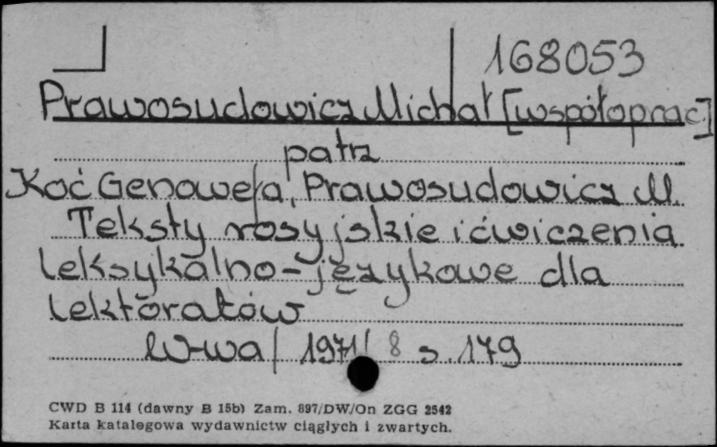 168053
Prawosudowicz Michał [współoprac.]
patrz
Koć Genowefa, Prawosudowicz M.
Teksty rosyjskie i ćwiczenia
leksykalno-językowe dla
lektoratów
W-wa/ 1971/ 8 s. 179
CWD B 114 (dawny B 15b) Zam. 897/DW/On ZGG 2542
Karta katalogowa wydawnictw ciągłych i zwartych.